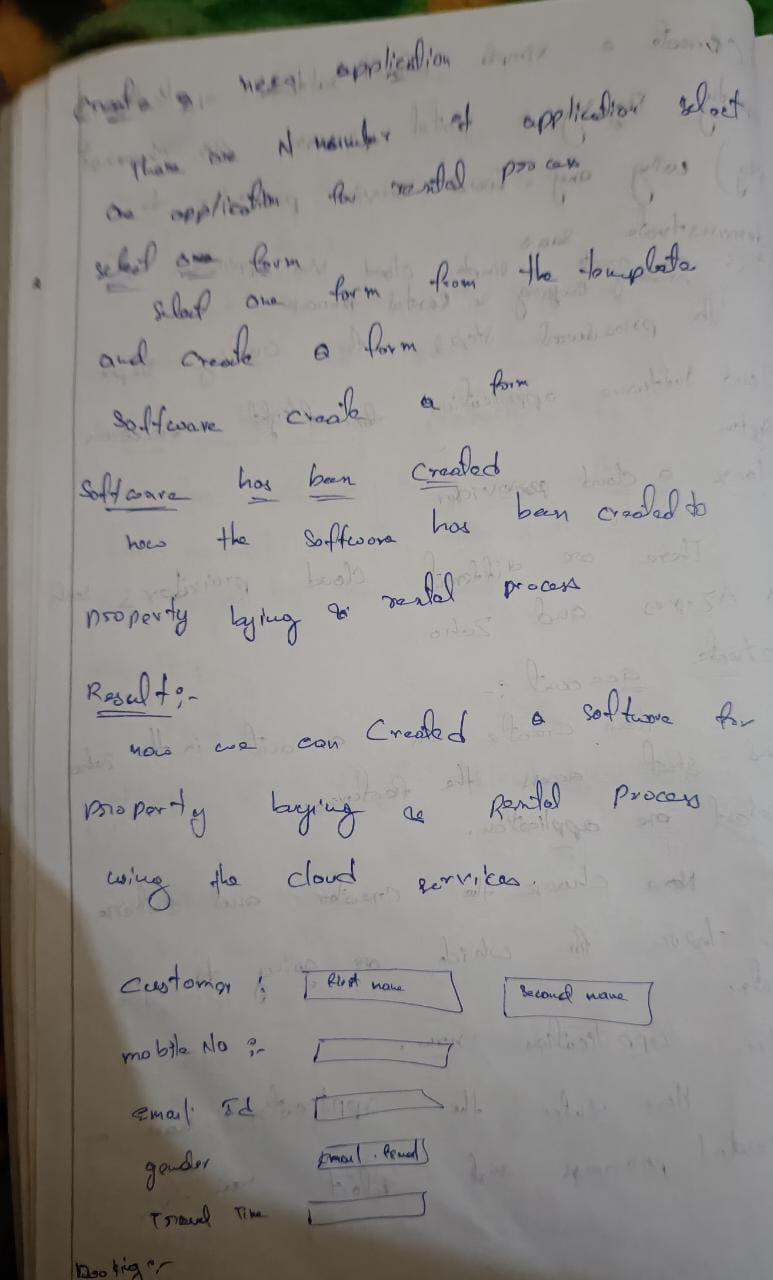 Create a new application
There are N number of application select
one application, for rental process
select one form
Select one form from the template
and create a form
Software create a form
Software has been created
how the software has been created to
property bying & rental process
Result:-
now we can Created a software for
property buying & Rental Process
using the cloud services.
Customer : First name Second name
mobile No :-
Email Id
gender
Travel Time